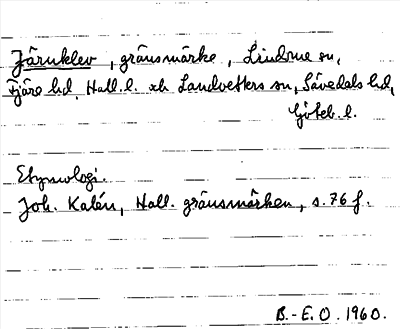 Järnklev, gränsmärke, Lindome sn,
Fjäre hd, Hall. l. och Landvetters sn, Sävedals hd,
Göteb. l.
Etymologi.
Joh. Kalén, Hall. gränsmärken, s. 76 f.
B.-E.O. 1960.